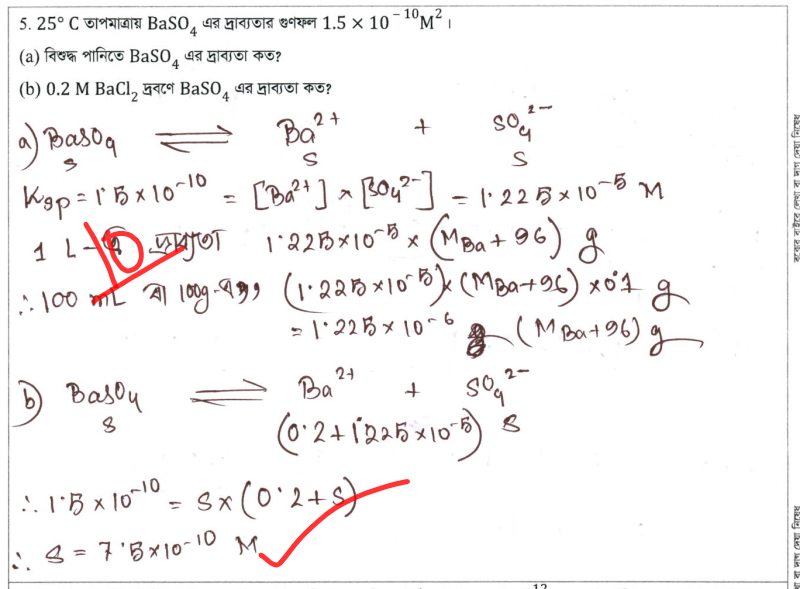 5. 25° C তাপমাত্রায় BaSO₄ এর দ্রাব্যতার গুণফল 1.5 × 10⁻¹⁰M² ।
(a) বিশুদ্ধ পানিতে BaSO₄ এর দ্রাব্যতা কত?
(b) 0.2 M BaCl₂ দ্রবণে BaSO₄ এর দ্রাব্যতা কত?
a) BaSO₄ ⇌ Ba²⁺ + SO₄²⁻
s s s
Ksp = 1.5 × 10⁻¹⁰ = [Ba²⁺] × [SO₄²⁻] = 1.225 × 10⁻⁵ M
1 L-এ দ্রাব্যতা 1.225×10⁻⁵ × (M_Ba + 96) g
∴ 100 mL বা 100g-এ, (1.225×10⁻⁵)×(M_Ba+96) × 0.1 g
= 1.225 × 10⁻⁶ (M_Ba+96) g
b) BaSO₄ ⇌ Ba²⁺ + SO₄²⁻
s (0.2+1.225×10⁻⁵) s
∴ 1.5 × 10⁻¹⁰ = s × (0.2+s)
∴ s = 7.5×10⁻¹⁰ M
12